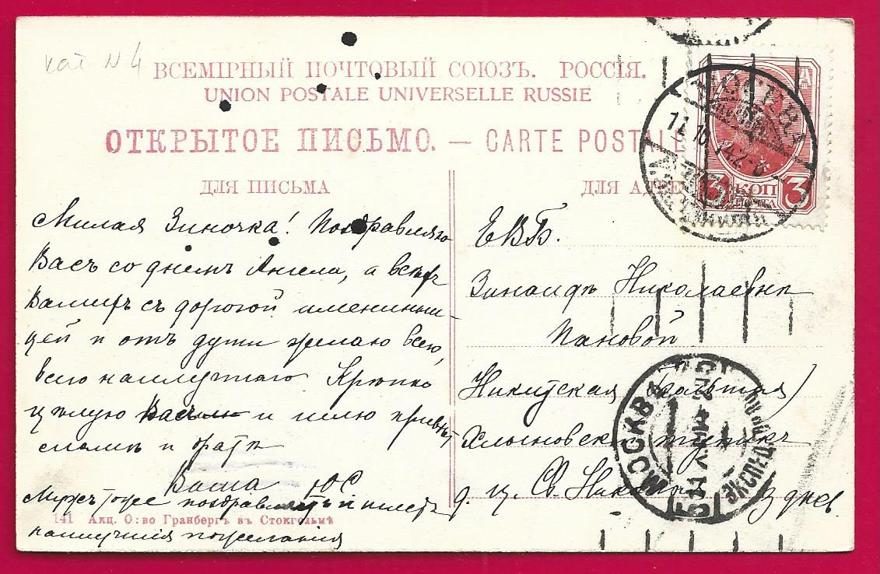 кат N 4
ВСЕМІРНЫЙ ПОЧТОВЫЙ СОЮЗЪ. РОССІЯ.
UNION POSTALE UNIVERSELLE RUSSIE
ОТКРЫТОЕ ПИСЬМО. — CARTE POSTALE
ДЛЯ ПИСЬМА
Милая Зиночка! Поздравляю
Васъ со днемъ Ангела, а всѣхъ
Вашихъ съ дорогой именинни-
цей и отъ души желаю всего,
всего наилучшаго Крѣпко
цѣлую и шлю привѣтъ
мамѣ и
Ваша ЮС
Мужъ тоже поздравляетъ и шлетъ
наилучшія пожеланія
141 Акц. О:во Гранбергъ въ Стокгольмѣ
ДЛЯ
ЕВБ.
Зинаидѣ Николаевнѣ
Пановой
Никитская (Малая)
Хлыновск тупикъ
д. ц. Св.
МОСКВА
3 КОП 3
МОСКВА